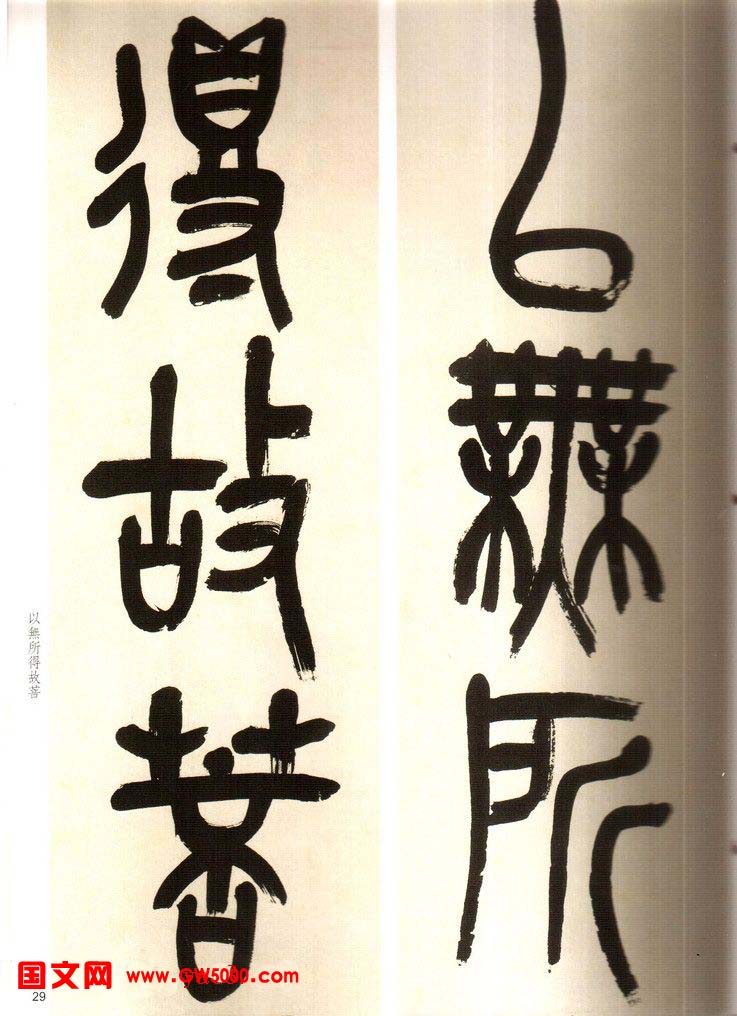 以無所
得故菩
以無所得故菩
国文网 www.GW5000.com
29